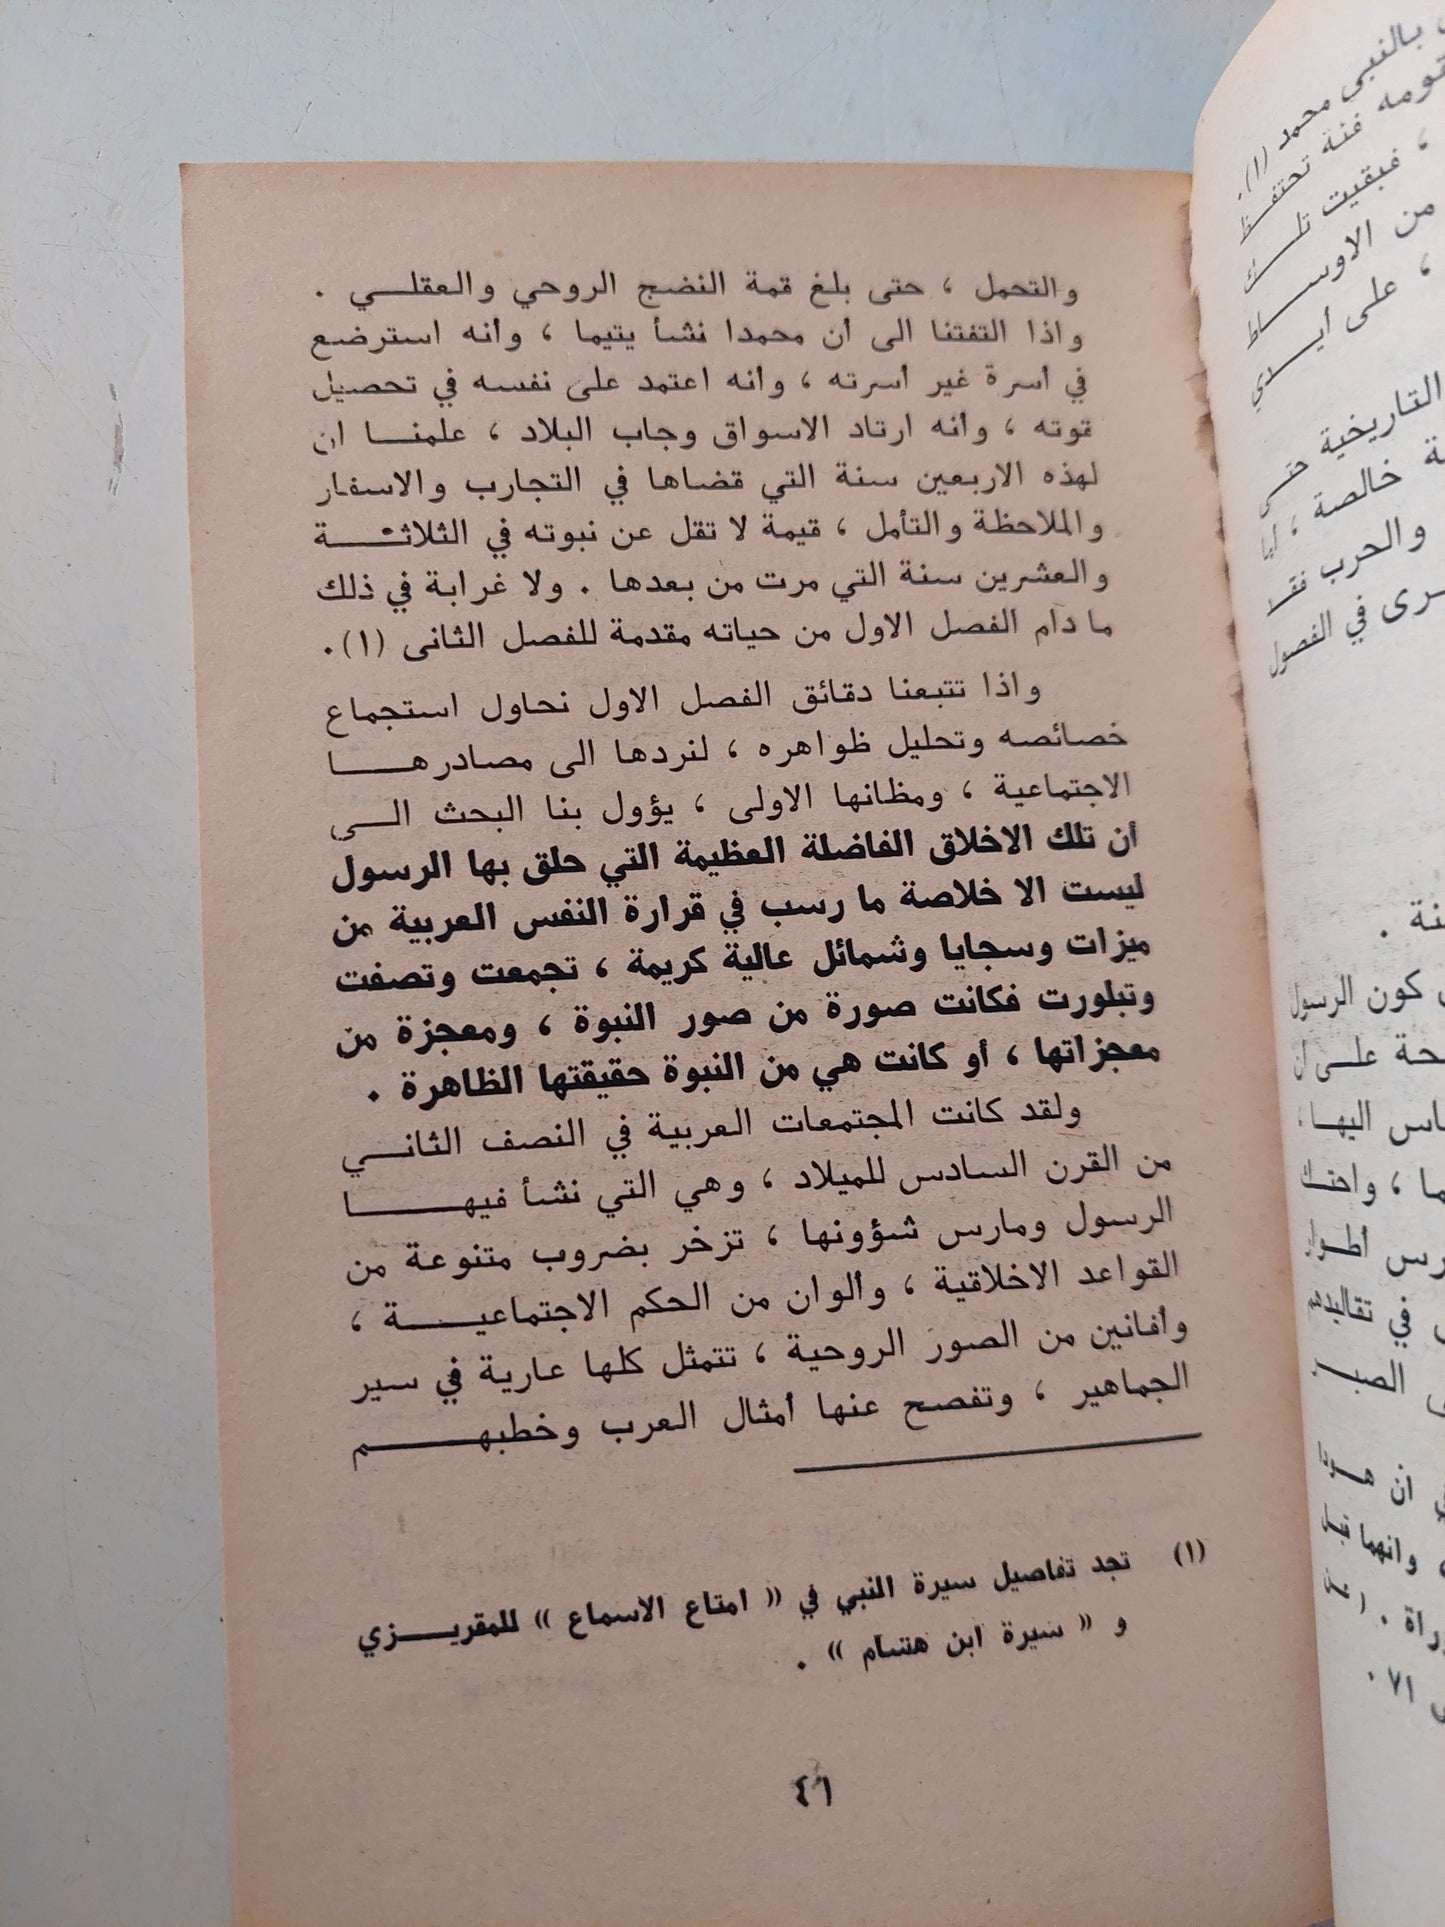 والتحمل ، حتى بلغ قمة النضج الروحي والعقلي .
واذا التفتنا الى أن محمدا نشأ يتيما ، وأنه استرضع
في أسرة غير أسرته ، وأنه اعتمد على نفسه في تحصيل
قوته ، وأنه ارتاد الاسواق وجاب البلاد ، علمنا ان
لهذه الاربعين سنة التي قضاها في التجارب والاسفار
والملاحظة والتأمل ، قيمة لا تقل عن نبوته في الثلاثة
والعشرين سنة التي مرت من بعدها . ولا غرابة في ذلك
ما دام الفصل الاول من حياته مقدمة للفصل الثانى (١).
واذا تتبعنا دقائق الفصل الاول نحاول استجماع
خصائصه وتحليل ظواهره ، لنردها الى مصادرها
الاجتماعية ، ومظانها الاولى ، يؤول بنا البحث الى
أن تلك الاخلاق الفاضلة العظيمة التي حلق بها الرسول
ليست الا خلاصة ما رسب في قرارة النفس العربية من
ميزات وسجايا وشمائل عالية كريمة ، تجمعت وتصفت
وتبلورت فكانت صورة من صور النبوة ، ومعجزة من
معجزاتها ، أو كانت هي من النبوة حقيقتها الظاهرة .
ولقد كانت المجتمعات العربية في النصف الثاني
من القرن السادس للميلاد ، وهي التي نشأ فيها
الرسول ومارس شؤونها ، تزخر بضروب متنوعة من
القواعد الاخلاقية ، وألوان من الحكم الاجتماعية ،
وأفانين من الصور الروحية ، تتمثل كلها عارية في سير
الجماهير ، وتفصح عنها أمثال العرب وخطبهم
(١) تجد تفاصيل سيرة النبي في « امتاع الاسماع » للمقريزي
و « سيرة ابن هشام » .
٤٦
بالنبي محمد (١).
قومه فئة تحتفظ
، فبقيت تلك
من الاوساط
، على أيدي
التاريخية حتى
خالصة ، لما
والحرب فقد
في الفصول
كون الرسول
على أن
اليها ،
، واحتك
أطوار
في تقاليدهم
الصبر
ان هودا
وانهما قبل
٧١ .